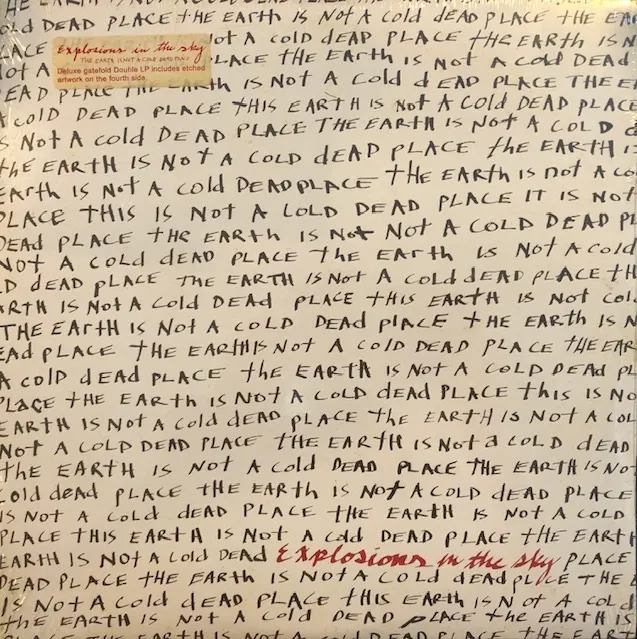 THE EARTH IS NOT A COLD DEAD PLACE THE
Old DEAD PLACE tHE EARTH IS Not A Cold dEAD PLACE THE EA
LACE
Explosions in the sky
THE EARTH IS NOT A COLD DEAD PLACE
Deluxe gatefold Double LP includes etched
artwork on the fourth side.
Not A cold dEAD PLACE tHE EARTH IS N
PLACE tHE EARth IS Not A cold DEAd
EAD PLACE tHE EARTH IS Not A COLD d EAD PLACE THE E
A COlD DEAD PLACE tHIS EARTH IS Not A COld DEAD PLACE
S Not A cold DEAD PLACE THE EARTH IS NOT A COLD d
tHE EARTH IS NOt A COLD dEAD PLACE tHE EARTH I
EARth IS Not A cold DEADPLACE tHE EARTH is not A co
PLACE THIS IS NOT A COLD DEAD PLACE IT IS NOT
DEAd PLACE tHE EARth IS Not Not A COLD DEAD Pl
NOT A COLD dEAD PLACE the EARth IS Not A cold
D dEAd PLACE THE EARTH IS Not A cold dEAD PLACE tH
ARTH IS Not A Cold DEAD PLACE tHIS EARTH IS Not Col
THE EARtH IS Not A COLD DEAD PlACE tHE EARTH IS N
EAd PLACE tHE EARtHIS Not A COLD DEAD PLACE tHE EAR
A COlD dEAd PLACE tHE EARTH IS Not A COLD DEAd PL
PLACE tHE EARTH IS Not A COLD dEAD PLACE this IS No
EARTH IS Not A cold dEAD PLACE the EARTH IS Not A Col
NOT A COLD DEAD PLACE THE EARTH IS Not a COLD dEAD
the EARTH IS Not A Cold DEAD PLACE tHE EARTH IS Not
Cold dead PLACE tHE EARth IS Not A COLD dEAD PLACE
IS Not A cold dEAD PLACE tHE EARTH IS Not A COLD
PLACE THIS EARTH IS Not A Cold DEAD PLACE tHE EARTH
EARTH IS Not A Cold DEAD Explosions in the sky PLACE
DEAD PLACE tHE EARth IS Not A COLD dEAd PLACE tHE
IS Not A cold dEAD PLACE tHIS EARTH IS Not A cold
tHE EARTH IS Not A COLD DEAD PLACE tHE EARTH IS
PLACE tHE EARTH IS Not A COLD DEAD PLACE tHE EAR